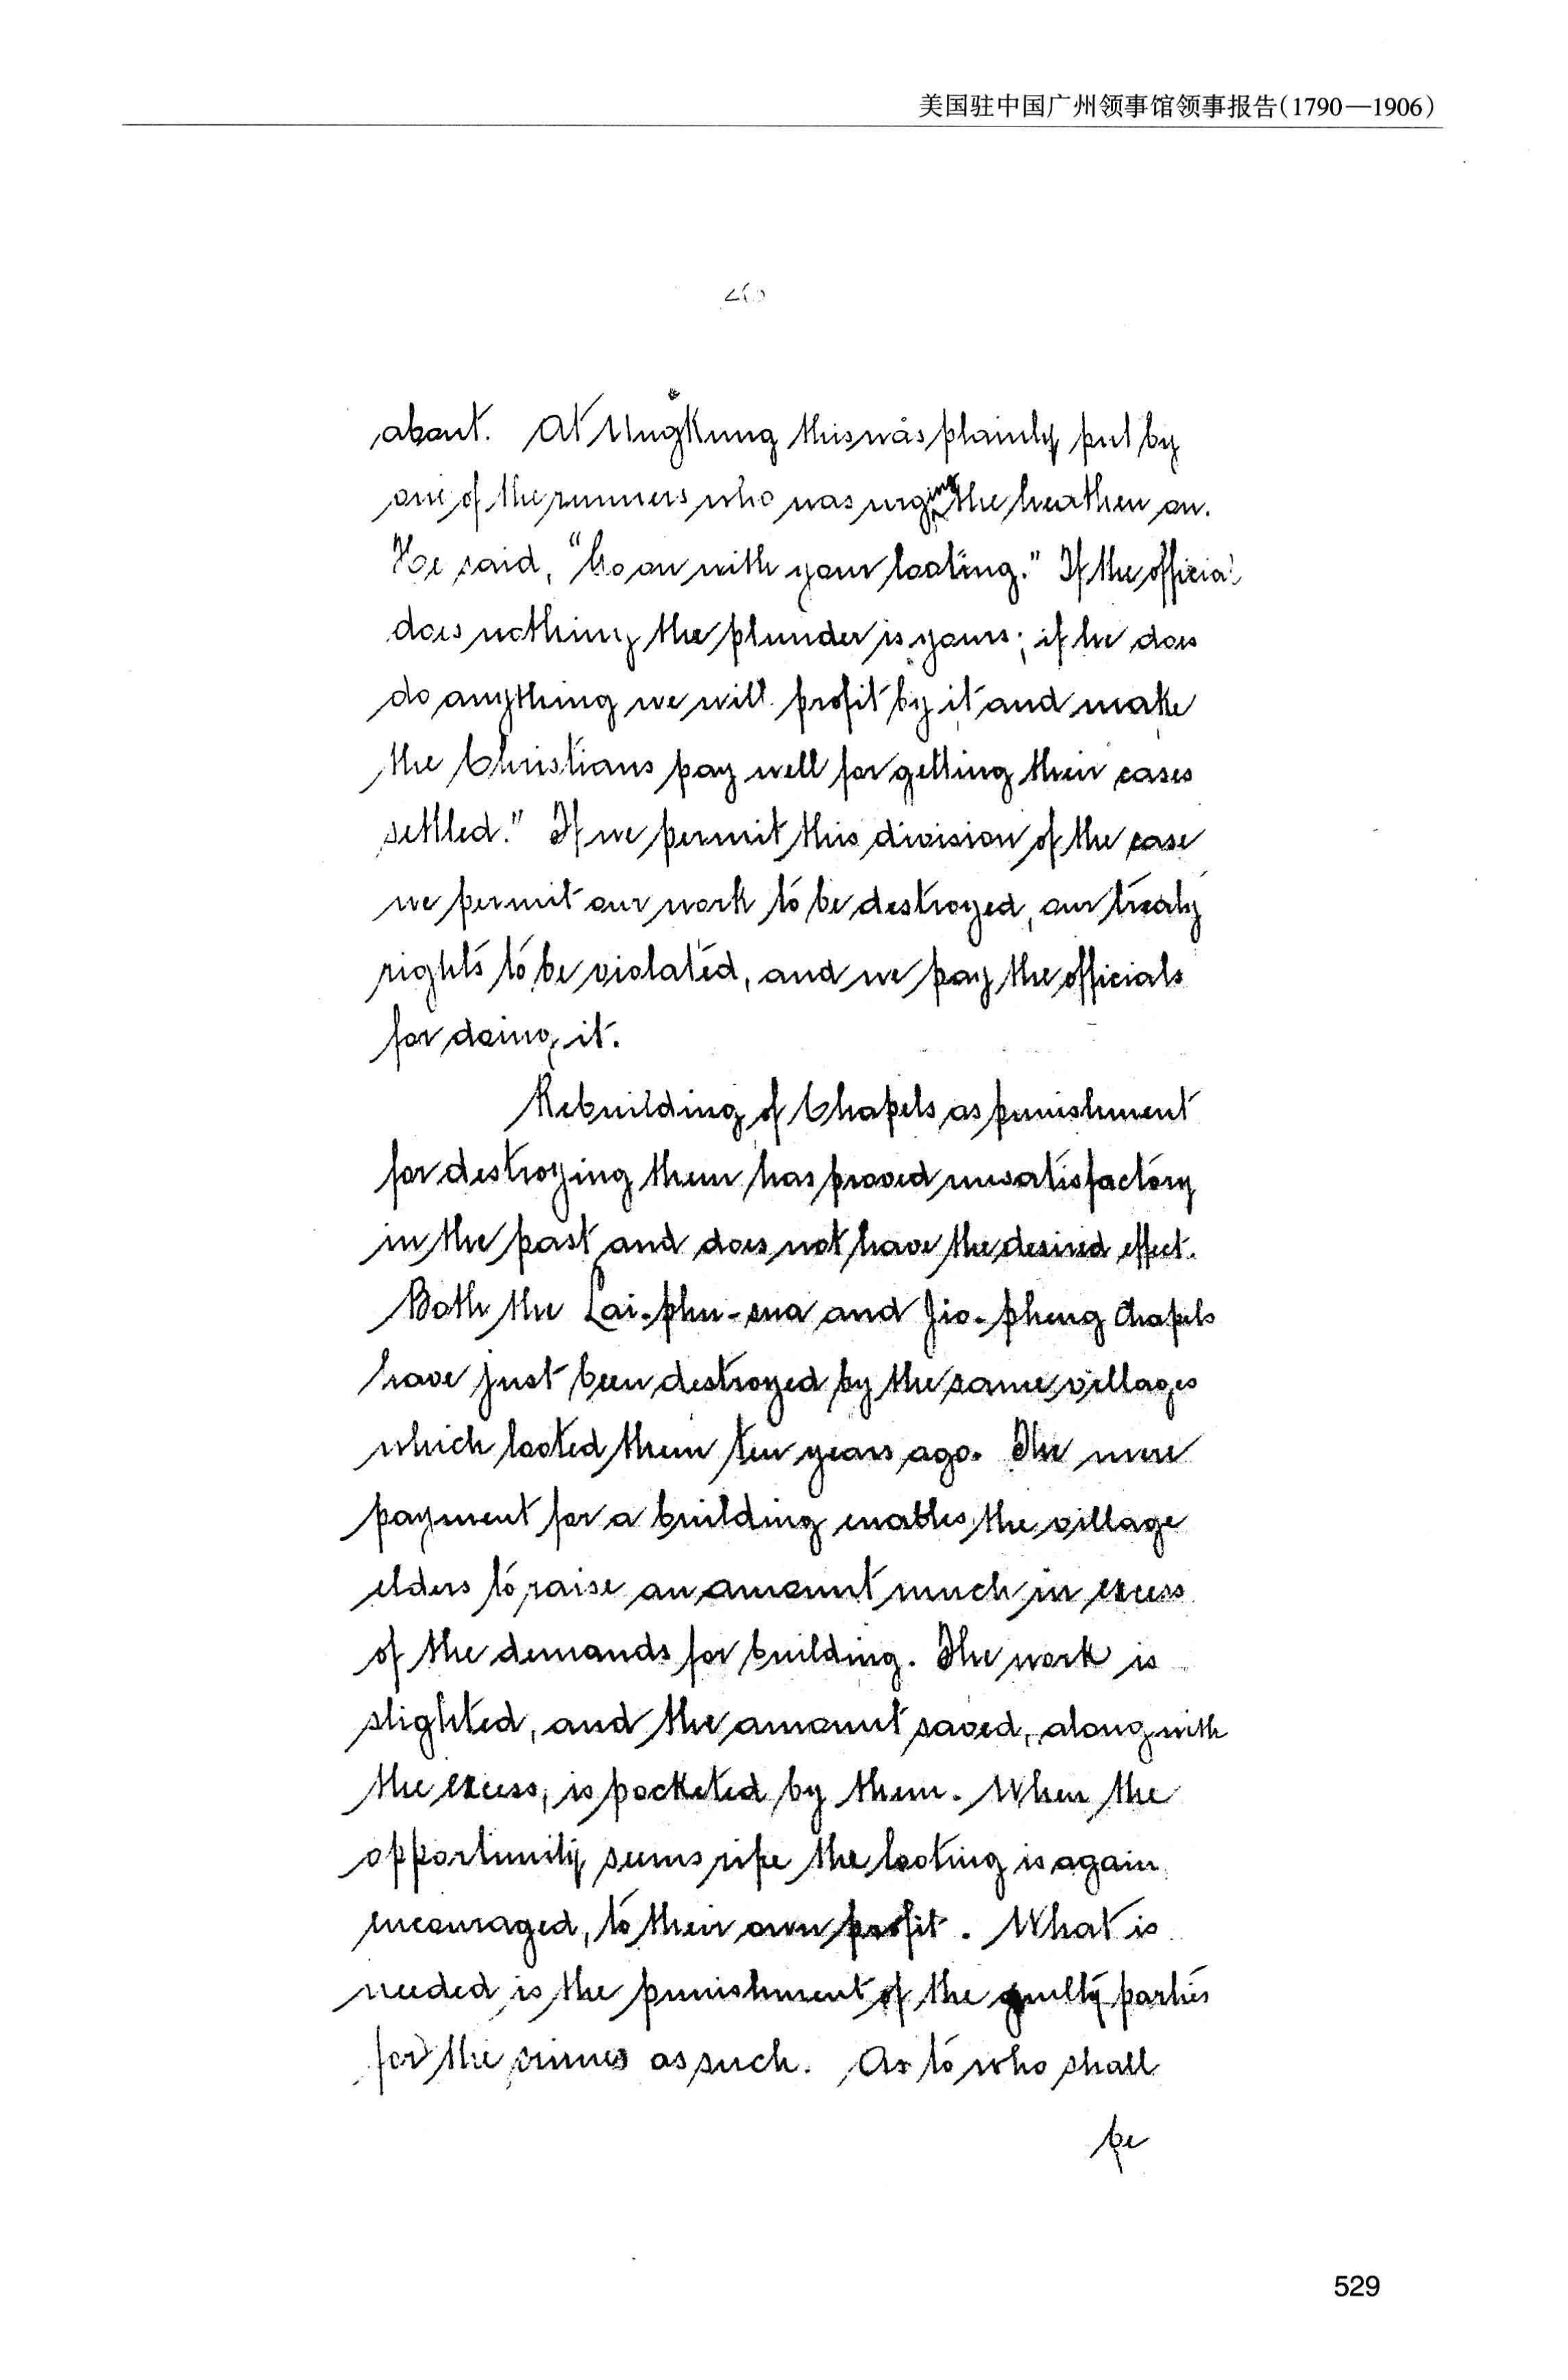 美国驻中国广州领事馆领事报告(1790—1906)
about. At Ungkung this was plainly put by
one of the runners who was urging the heathen on.
He said, "Go on with your looting." If the official
does nothing the plunder is yours; if he does
do anything we will profit by it and make
the Christians pay well for getting their cases
settled." If we permit this division of the case
we permit our work to be destroyed, our treaty
rights to be violated, and we pay the officials
for doing it.
Rebuilding of Chapels as punishment
for destroying them has proved unsatisfactory
in the past and does not have the desired effect.
Both the Lai-phu-sua and Jio-pheng Chapels
have just been destroyed by the same villages
which looted them ten years ago. The mere
payment for a building enables the village
elders to raise an amount much in excess
of the demands for building. The work is
slighted, and the amount saved, along with
the excess, is pocketed by them. When the
opportunity seems ripe the looting is again
encouraged, to their own profit. What is
needed is the punishment of the guilty parties
for the crimes as such. As to who shall
be
529